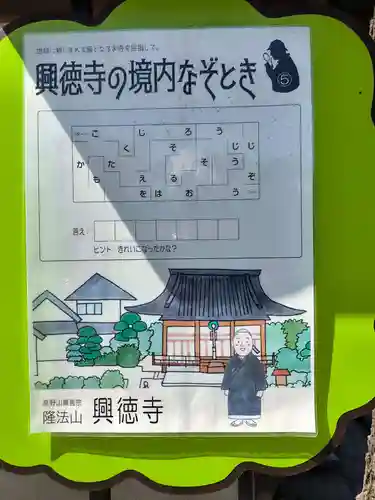 地域に親しまれる寺となる寺院を目指して。
興徳寺の境内なぞとき
⑤
こ じ ろ う
く そ じ じ
か た そ う
も え る ぞ
を は お う
答え:
ヒント きれいになったかな?
高野山真言宗
隆法山 興徳寺